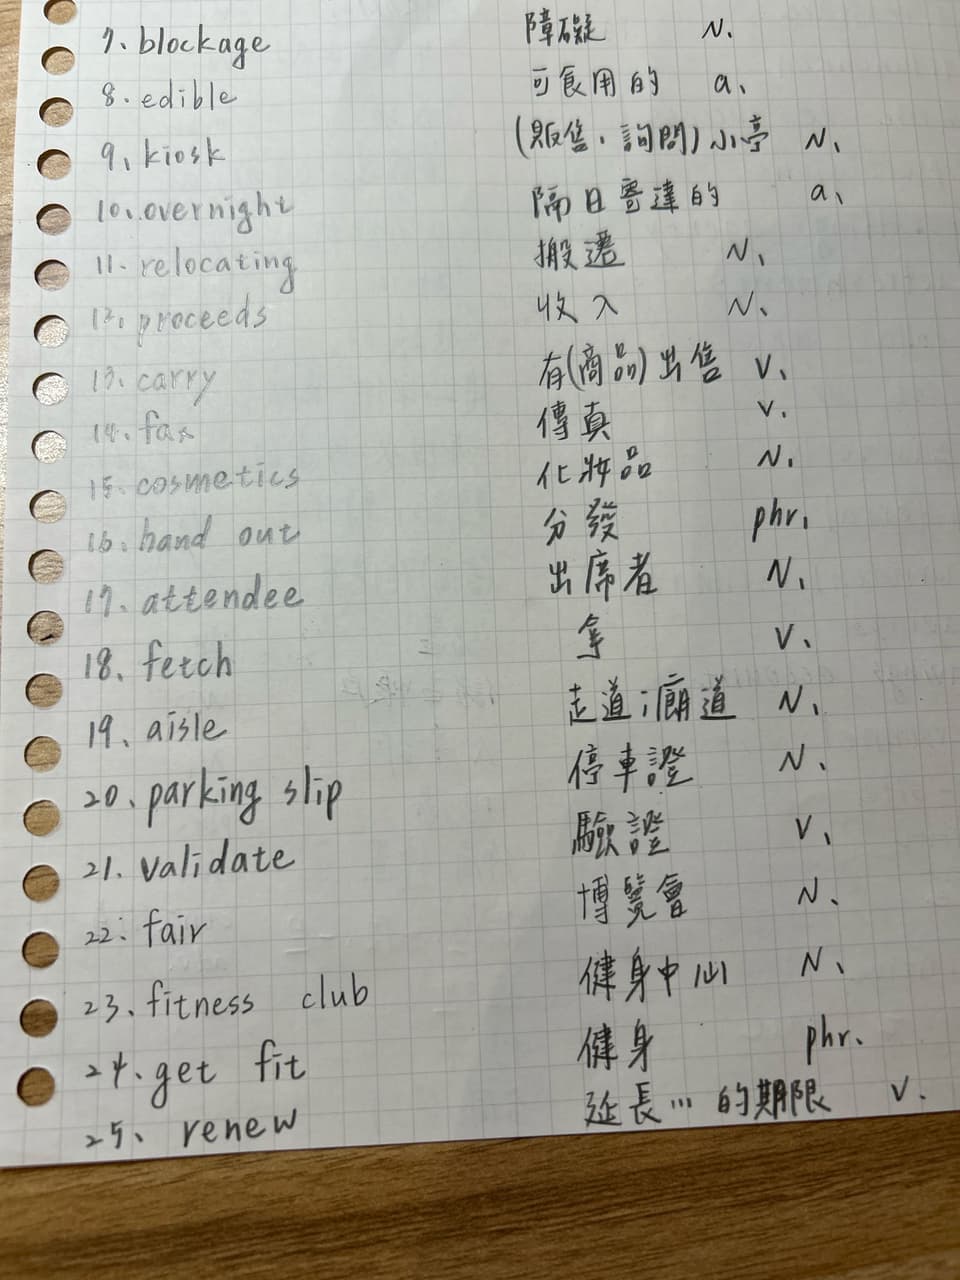 7. blockage 障礙 N.
8. edible 可食用的 a.
9. kiosk (販售、詢問)小亭 N.
10. overnight 隔日寄達的 a.
11. relocating 搬遷 N.
12. proceeds 收入 N.
13. carry 有(商品)出售 V.
14. fax 傳真 V.
15. cosmetics 化妝品 N.
16. hand out 分發 phr.
17. attendee 出席者 N.
18. fetch 拿 V.
19. aisle 走道;廊道 N.
20. parking slip 停車證 N.
21. validate 驗證 V.
22. fair 博覽會 N.
23. fitness club 健身中心 N.
24. get fit 健身 phr.
25. renew 延長…的期限 V.